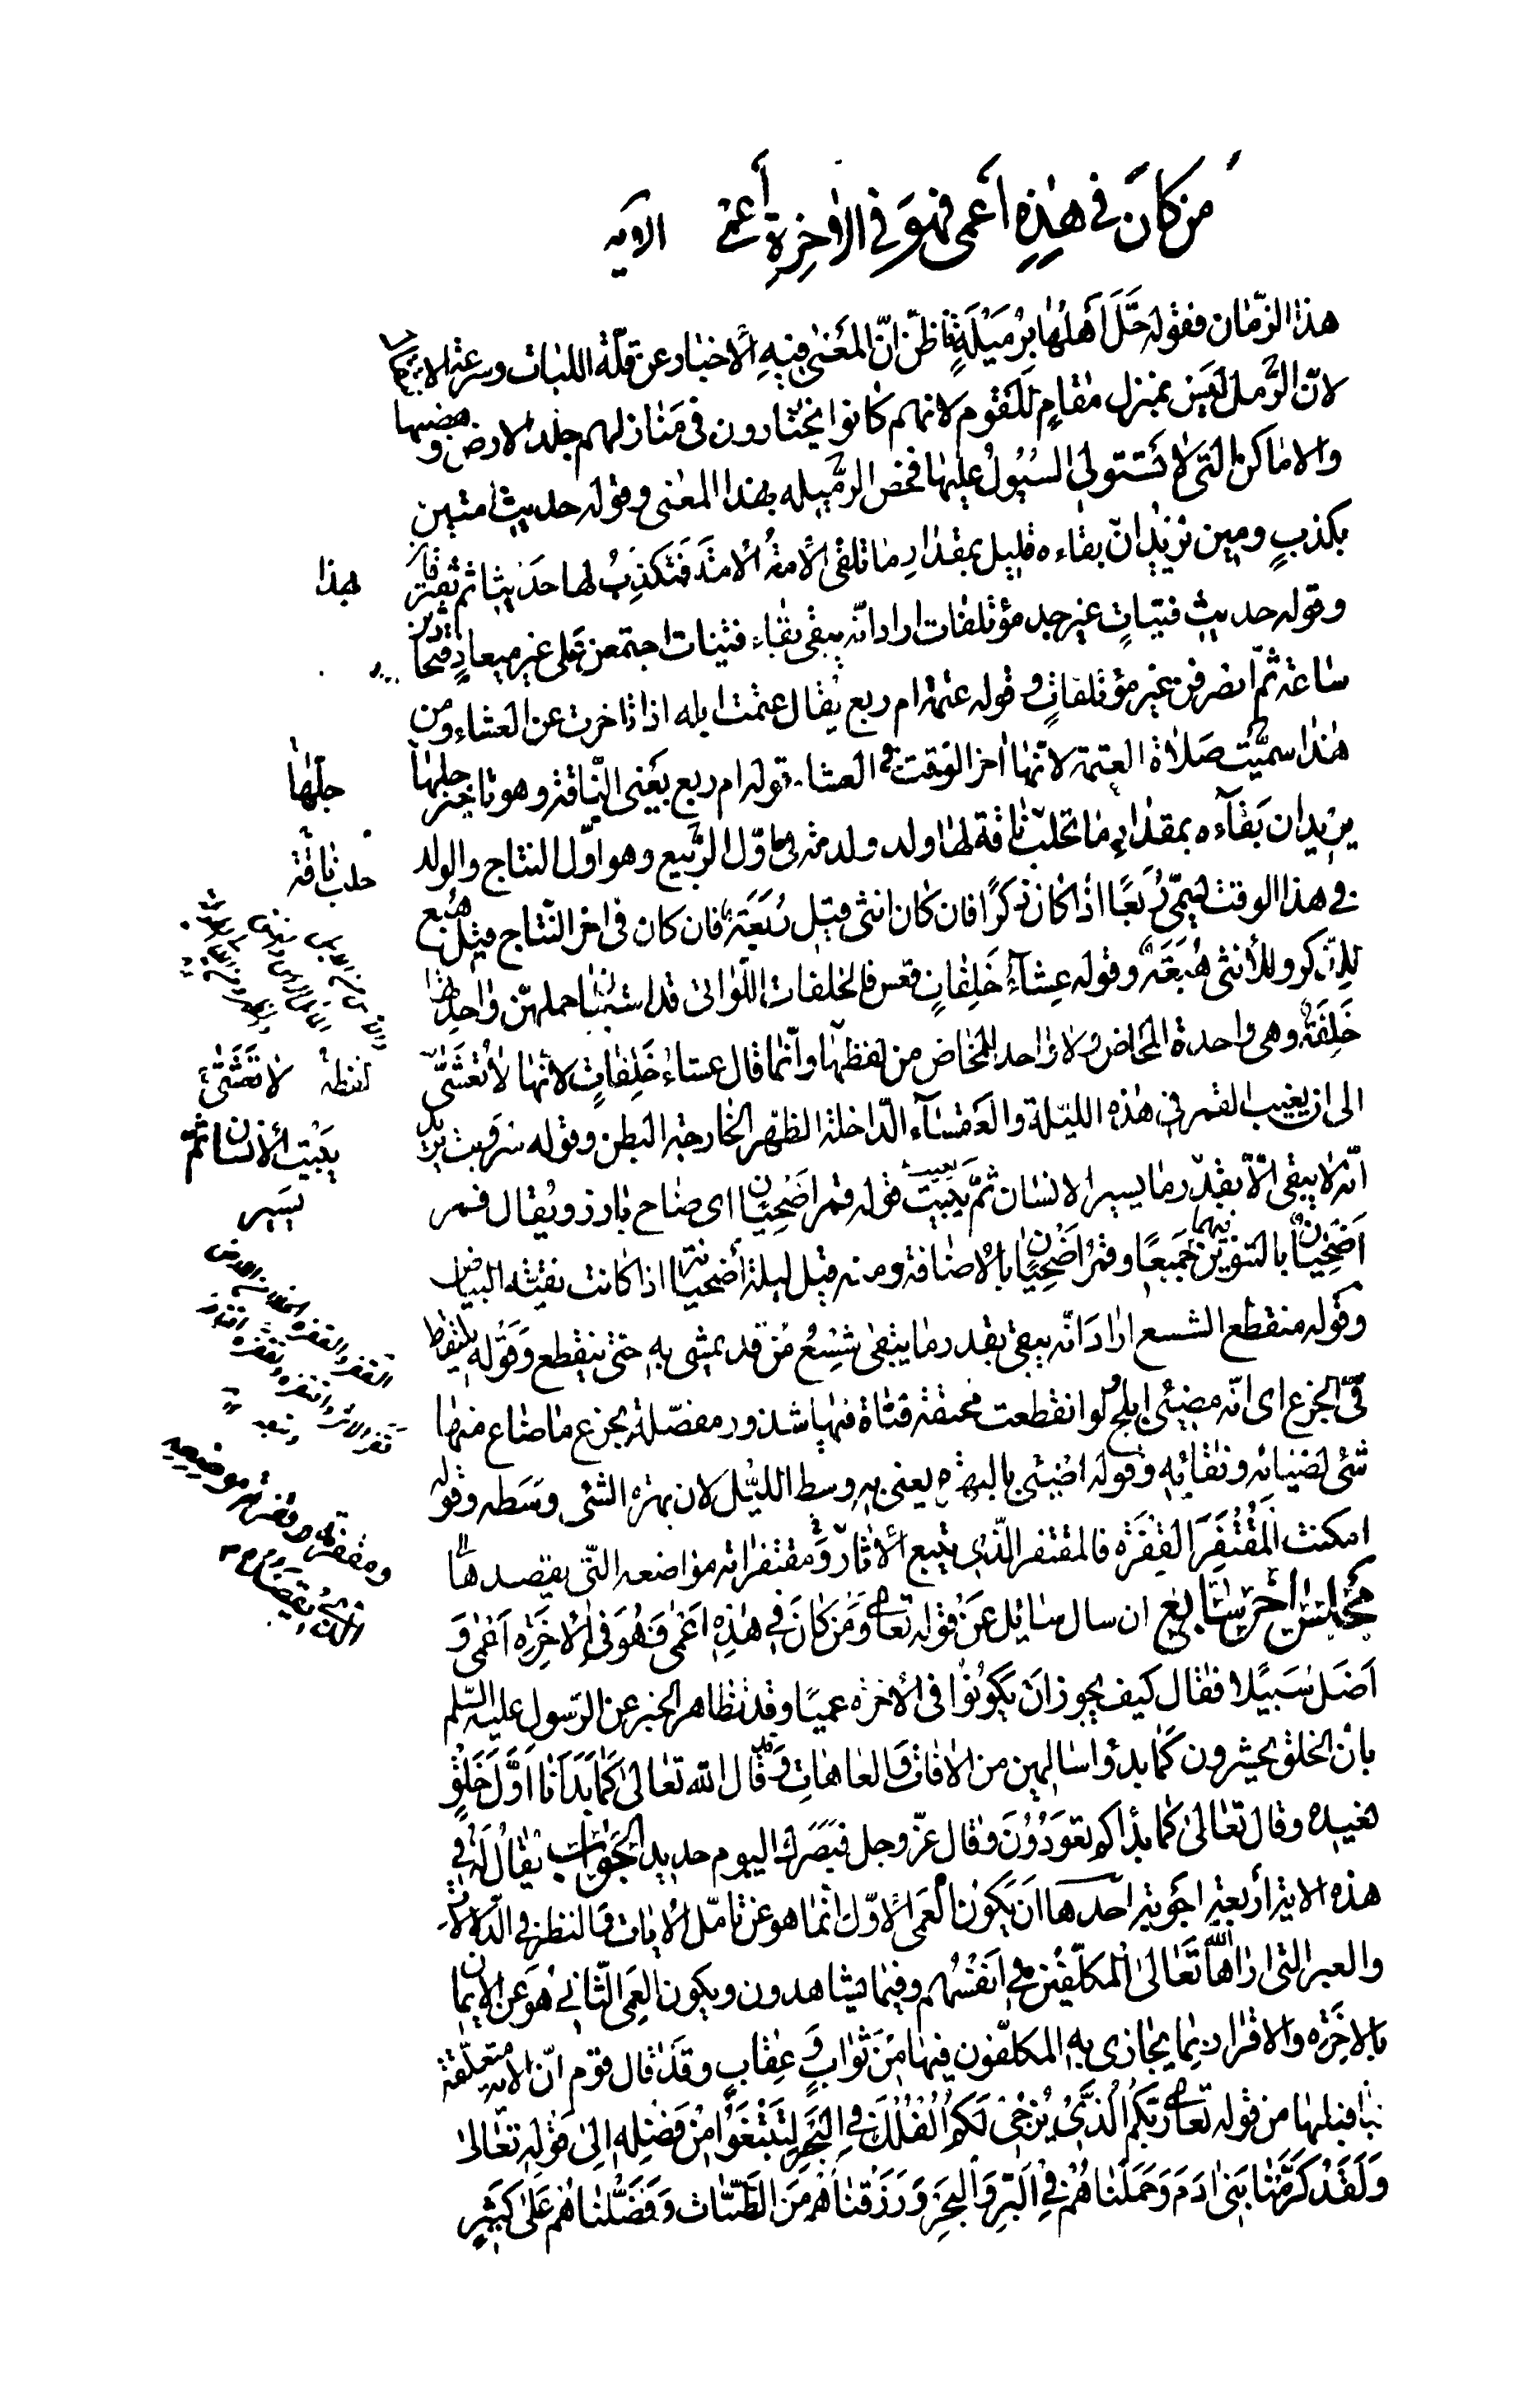 من كان في هذه أعمى فهو في الاخرة أعمى الاية
هذا الزمان فقوله حَلَّ أهلُها برُمَيْلَةٍ فاظنّ انّ المعنى فيه الاخبار عن قلّة اللبات وسرعة الانتجا
لانّ الرَّمل ليس بمنزل مقامٍ للقوم لانهم كانوا يختارون في منازلهم جلد الارض وهضبها
والاماكن التي لا تستولي السُيُول عليها فخص الرميله بهذا المعنى وقوله حديث امتين
بكذبٍ ومين نريد انّ بقاءه قليل بمقدار ما تلقى الأمةُ الامَة فتكذبُ لها حديثا ثم تفترقان
لهذا
وقوله حديث فتياتٍ غير جد مؤتلفات اراد انه يبقى بقاء فتيات اجتمعن على غير ميعادٍ فتحادثن
ساعة ثمّ انصرفن غير مؤتلفاتٍ وقوله عتمة ام ربع يقال عتمت ابله اذا تاخرت عن العشاء ومن
هذا سميّت صلاة العتمة لانّها اخر الوقت في العشا وقوله ام ربع يعني النّاقة وهو تاخير حلبها
جلّها
يريد ان بقآءه بمقدار ما تحلب ناقة لها ولد ولدته في اوّل الربيع وهو اوّل النتاج والولد
حلب ناقة
في هذا الوقت يسمّى رُبَعًا اذا كان ذكرًا فان كان انثى قيل رُبَعَة فان كان في اخر النتاج قيل هُبَع
للذّكر وللأنثى هُبَعَة وقوله عشآءُ خَلِفاتٍ قعس فالخلفات اللّواتي قد استبان حملهنّ واحدها
خَلِفَة وهي واحدة المخاض ولا واحد للمخاض من لفظها وانّما قال عشاءُ خَلِفاتٍ لانّها لا تُعَشَّى
لفظه لا تَعَشّى
الى ان يغيب القمر في هذه الليلة والقعسآء الدّاخلة الظهر الخارجة البطن وقوله سر وبت يريد
يَبيْت الأنسان ثمّ
انه لا يبقى الّا بقدر ما يسير الانسان ثمّ يَبِيت قوله قمر اضْحِيَان اى ضاح بارز ويُقال قمر
يَسير
اَضْحِيَانٌ بالتنوين فيهما جميعًا وقمرُ اضْحِيَانٍ بالاضافة ومنه قيل ليلة أضحيانة اذا كانت نقيّة البياض
وقوله منقطع الشسع ارادَ انّه يبقى بقدر ما يبقى شِسْعُ من قد يمشى به حتى ينقطع وَقوله يلتقط
فيّ الجزع اى انّه مضيئ ابلج لو انقطعت مخنقة فتاة فيها شذور مفصّلة بجزع ما ضاع منها
شئ لضيائه ونقائه وقوله اضيئ بالبهرة يعني به وسط الليل لان بهرة الشئ وسَطه وقوله
امكنت المُقْتَفِرَ القَفْرَة فالمقتفر الّذى يتبع الاثار ومقتفراته مواضعه التّي يقصدها
ومقفرته وقفرته موضعه
الذى يقصد
مجلس اخر سابع ان سال سائل عن قوله تعالى وَمَن كانَ في هذِه اَعْمى فَهُوَ في الاخِرَة اَعمى وَ
اَضَلّ سَبيلا فقال كيف يجوز ان يكونوا في الاخرة عميًا وقد تظاهر الخبر عن الرّسول عليه السّلم
بان الخلق يحشرون كما بدؤا سالمين من الافات والعاهات وقد قال الله تعالى كما بَدَأنا اوّل خَلقٍ
نعيده وقال تعالى كما بدأكم تعودُونَ وقال عزّ وجل فبَصَرك اليوم حديد الجواب يُقال له في
هذه الاية أربعة اجوبة احدها ان يكون العمى الاوّل انّما هو عن تامّل الايات والنظر في الدّلالات
والعبر التي اراها الله تعالى المكلّفين في انفسهم وفيما يشاهدون ويكون العمى الثّاني هو عن الايمان
بالاخِرَة والاقرار بما يجازى به المكلّفون فيها من ثوابٍ وعِقابٍ وقد قال قوم انّ الاية متعلّقة
بما قبلها من قوله تعالى ربّكُم الّذي يُزْجى لكم الفُلْكَ في البَحر لِتَبْتَغُوا مِن فَضْلِه اِلى قوله تعالى
وَلَقَدْ كَرَّمْنا بَني ادَمَ وَحَمَلْناهُمْ في البَرِّ وَالبحَرِ وَرَزَقْناهُم مِنَ الطَّيّبات وَفَضَّلْناهُمْ عَلى كَثيرٍ